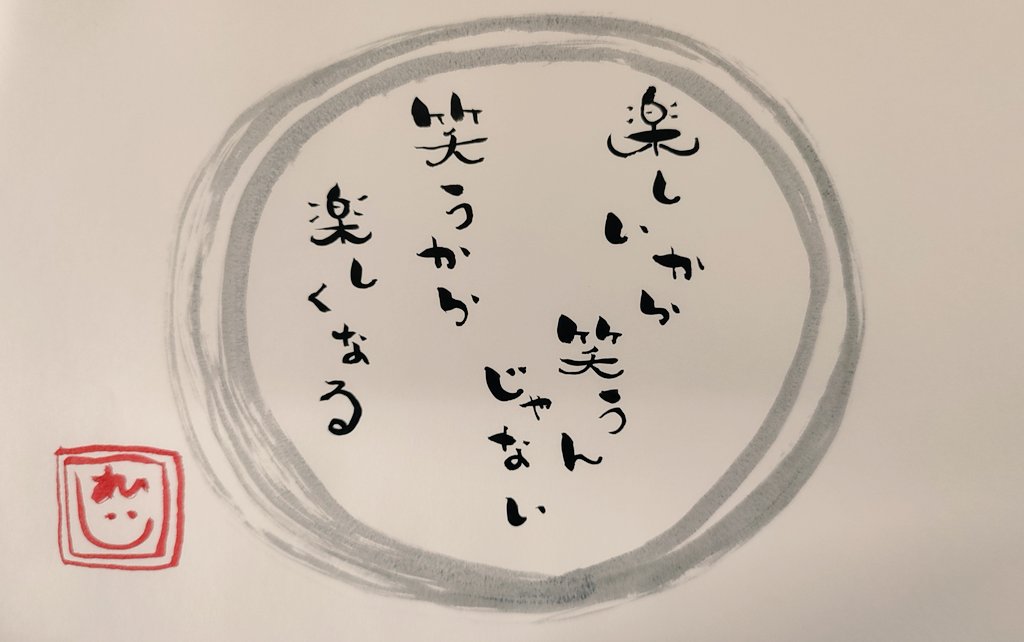 楽しいから
笑うん
じゃない
笑うから
楽しくなる
れい